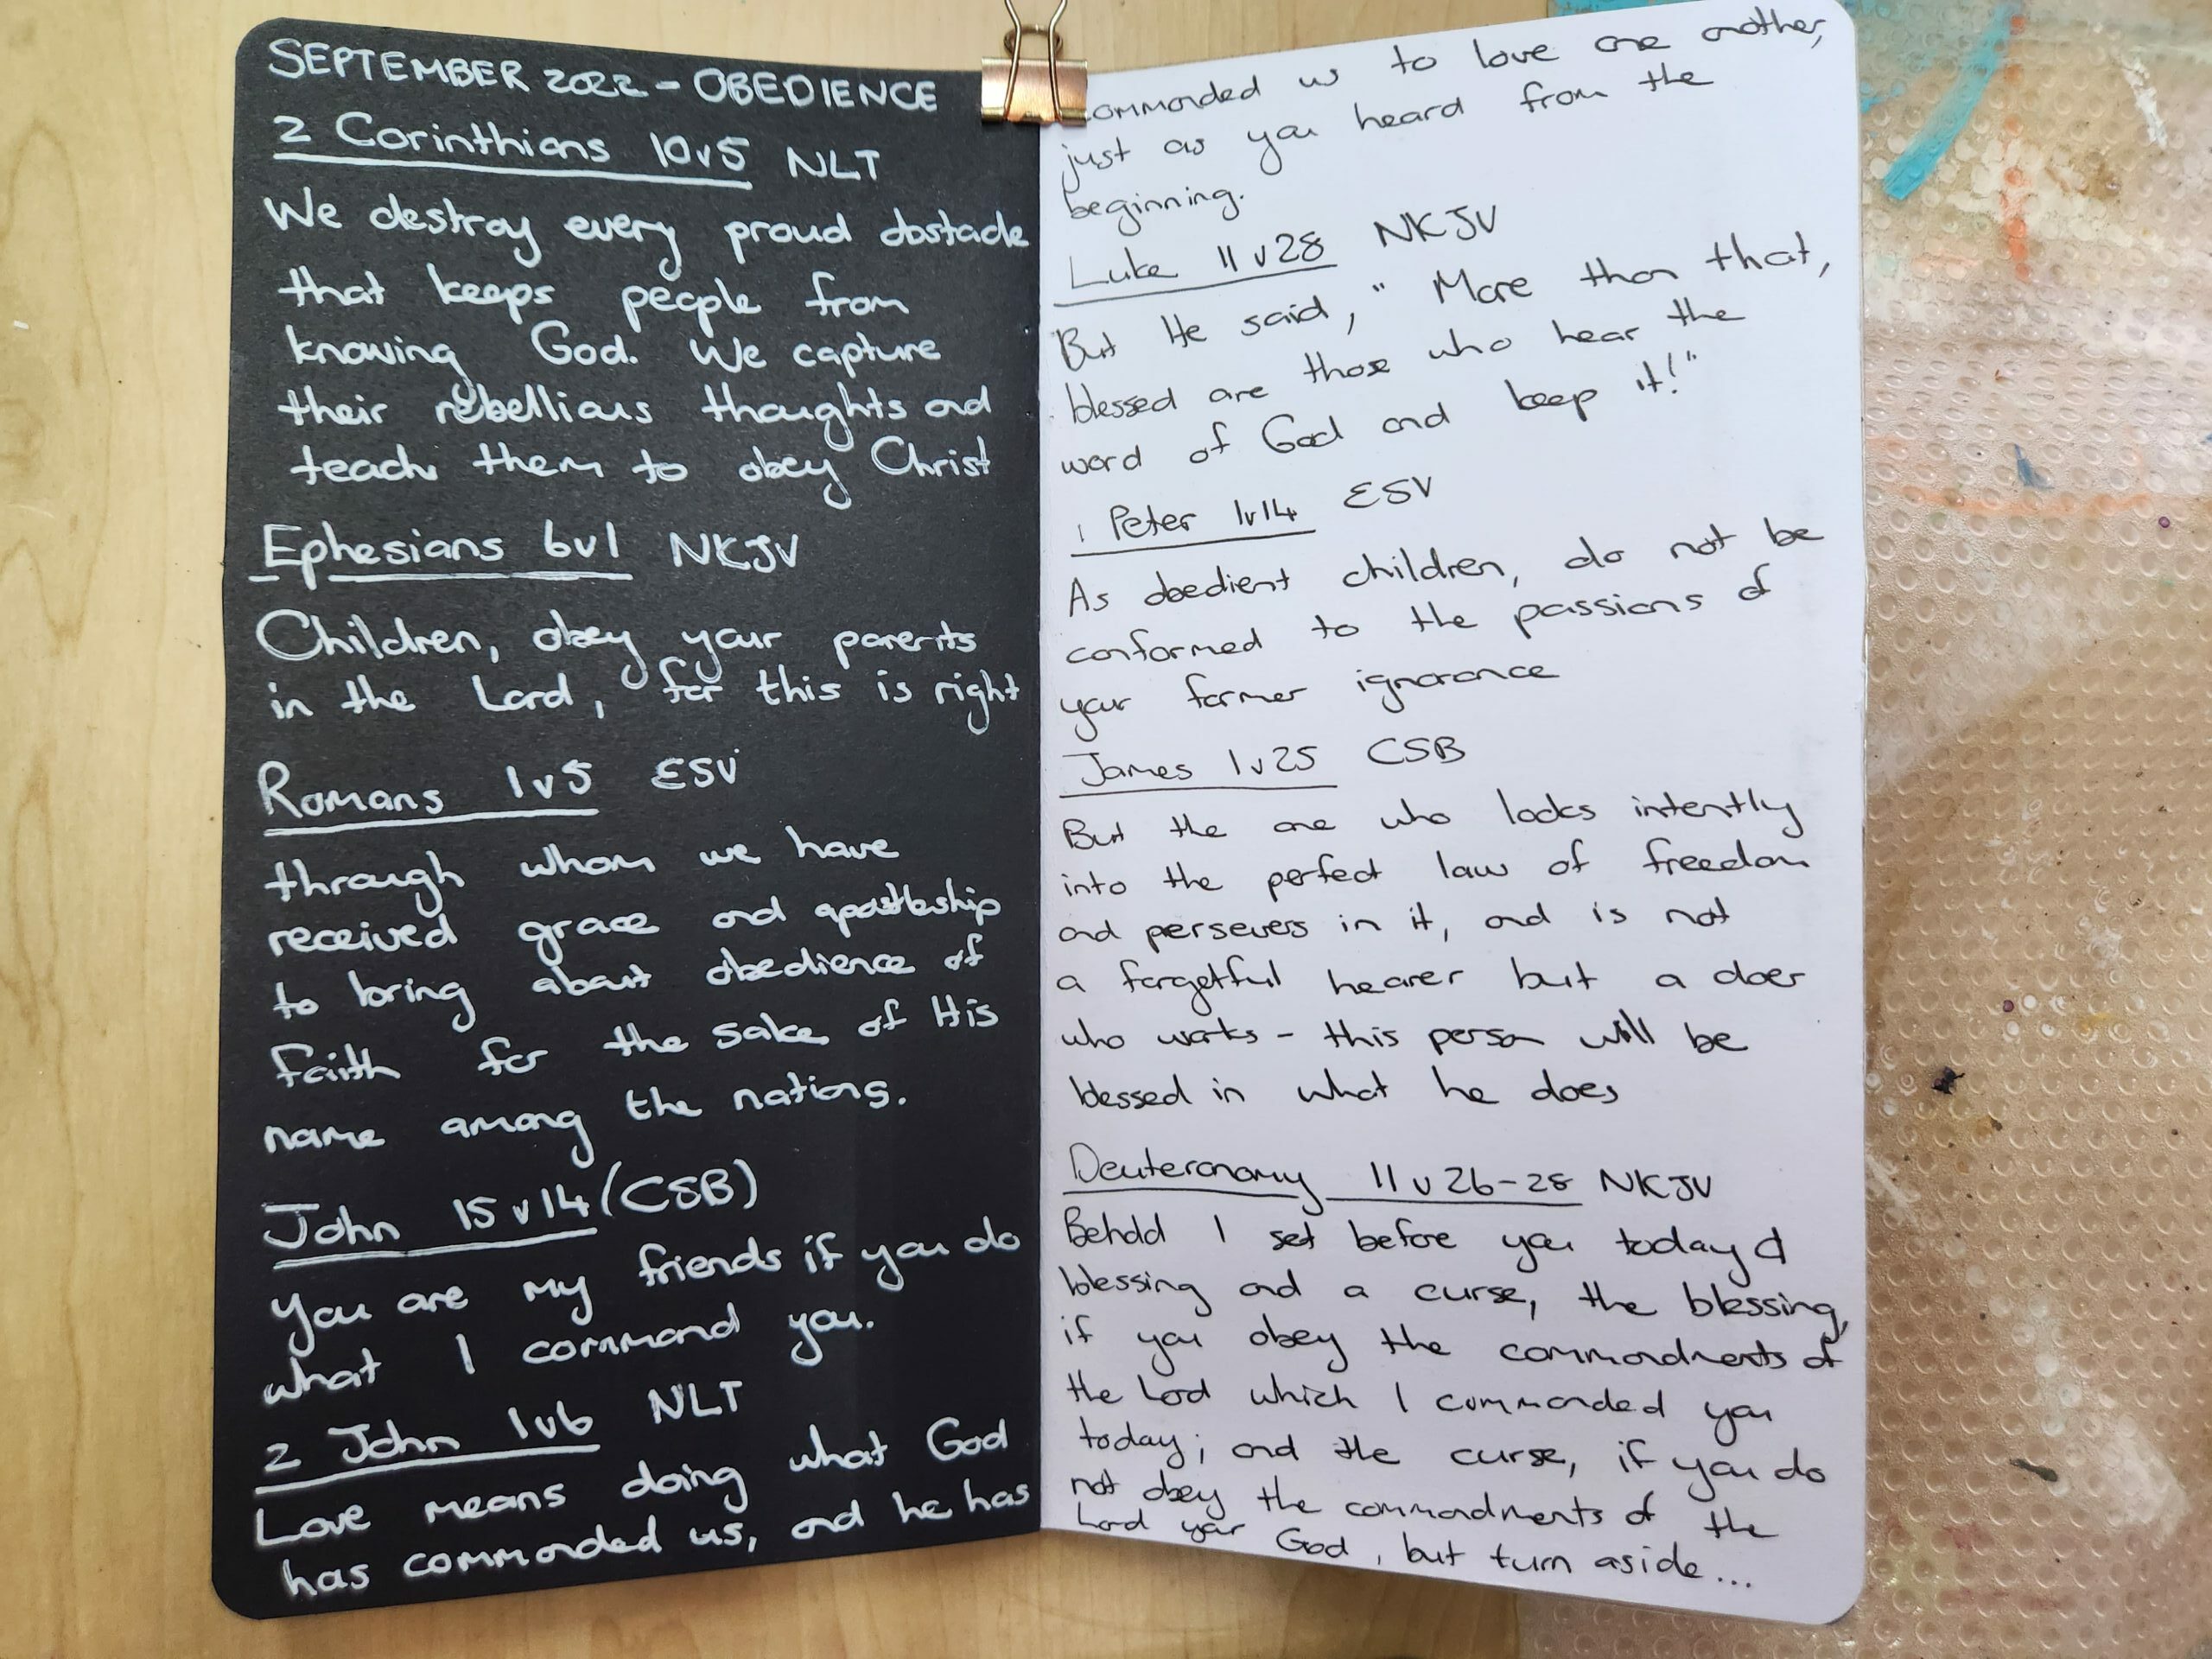 SEPTEMBER 2022 - OBEDIENCE
2 Corinthians 10v5 NLT
We destroy every proud obstacle
that keeps people from
knowing God. We capture
their rebellious thoughts and
teach them to obey Christ
Ephesians 6v1 NKJV
Children, obey your parents
in the Lord, for this is right
Romans 1v5 ESV
through whom we have
received grace and apostleship
to bring about obedience of
faith for the sake of His
name among the nations.
John 15v14 (CSB)
You are my friends if you do
what I command you.
2 John 1v6 NLT
Love means doing what God
has commanded us, and he has
commanded us to love one another,
just as you heard from the
beginning.
Luke 11v28 NKJV
But He said, "More than that,
blessed are those who hear the
word of God and keep it!"
1 Peter 1v14 ESV
As obedient children, do not be
conformed to the passions of
your former ignorance
James 1v25 CSB
But the one who looks intently
into the perfect law of freedom
and persevers in it, and is not
a forgetful hearer but a doer
who works - this person will be
blessed in what he does
Deuteronomy 11v26-28 NKJV
Behold I set before you today a
blessing and a curse, the blessing,
if you obey the commandments of
the Lord which I commanded you
today; and the curse, if you do
not obey the commandments of the
Lord your God, but turn aside...